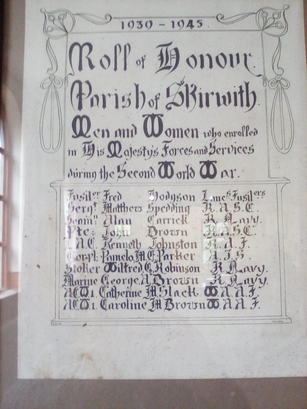 1939 - 1945.
Roll of Honour.
Parish of Skirwith.
Men and Women who enrolled
in His Majestys Forces and Services
during the Second World War.
Fusilier Fred Hodgson Lanc. Fusiliers
Sergt. Matthew Spedding R.A.S.C.
Alan Carrick R. Navy.
Pte. John Brown R.A.S.C.
L.A.C. Kenneth Johnston R.A.F.
Corpl. Pamela M.E. Parker A.T.S.
Stoker Wilfred G. Robinson R. Navy.
Marine George A. Brown R. Navy.
ACW1 Catherine M. Slack W.A.A.F.
ACW1 Caroline M. Brown W.A.A.F.